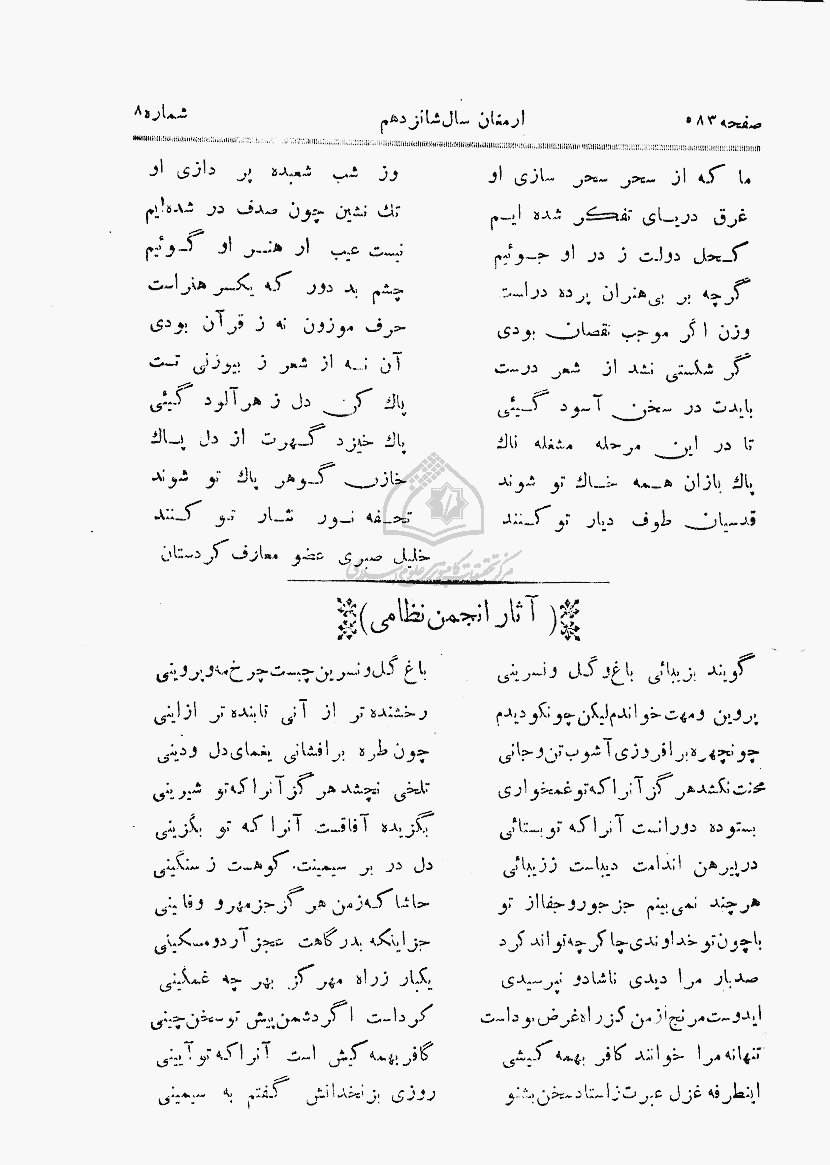 صفحه ۵۸۳ ارمغان سال شانزدهم شماره ۸
ما که از سحر سحر سازی او وز شب شعبده پر دازی او
غرق دریای تفکر شده ایم تك نشین چون صدف در شده‌ایم
کحل دولت ز در او جوئیم نیست عیب ار هنر او گوئیم
گرچه بر بی‌هنران پرده دراست چشم بد دور که یکسر هنراست
وزن اگر موجب نقصان بودی حرف موزون نه ز قرآن بودی
گر شکستی نشد از شعر درست آن نه از شعر ز بیوزنی تست
بایدت در سخن آسود گیئی پاك کن دل ز هر آلود گیئی
تا در این مرحله مشغله ناك پاك خیزد گهرت از دل پاك
پاك بازان همه خاك تو شوند خازن گوهر پاك تو شوند
قدسیان طوف دیار تو کنند تحفه نور نثار تو کنند
خلیل صبری عضو معارف کردستان
مرکز تحقیقات کامپیوتری علوم اسلامی
( آثار انجمن نظامی )
گویند بزیبائی باغ و گل و نسرینی باغ گل و نسرین چیست چرخ مه و پروینی
پروین و مهت خواندم لیکن چو نکو دیدم رخشنده تر از آنی تابنده تر ازاینی
چونچهره برافروزی آشوب تن و جانی چون طره برافشانی یغمای دل و دینی
محنت نکشد هرگز آنرا که تو غمخواری تلخی نچشد هرگز آنرا که تو شیرینی
بستوده دورانست آنرا که تو بستائی بگزیده آفاقست آنرا که تو بگزینی
در پیرهن اندامت دیباست ز زیبائی دل در بر سیمینت کوهست ز سنگینی
هر چند نمی بینم جز جور و جفا از تو حاشا که ز من هرگز جز مهر و وفا بینی
با چون تو خداوندی چاکر چه تواند کرد جز اینکه بدرگاهت عجز آرد و مسکینی
صدبار مرا دیدی ناشاد و نپرسیدی یکبار ز راه مهر کز بهر چه غمگینی
ایدوست مرنج از من کز راه غرض بوداست کرداست اگر دشمن پیش تو سخن چینی
تنها نه مرا خوانند کافر بهمه کیشی کافر بهمه کیش است آنرا که تو آیینی
اینطرفه غزل عبرت ز استاد سخن بشنو روزی بزنخدانش گفتم به سیمینی